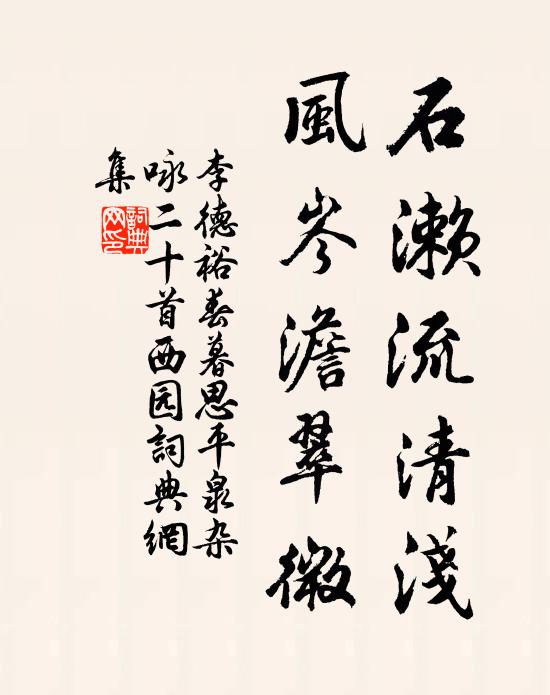 石濑流清淺
風岑澹翠微
李德裕春暮思平泉杂
咏二十首西园詞典網
集
詞典网印